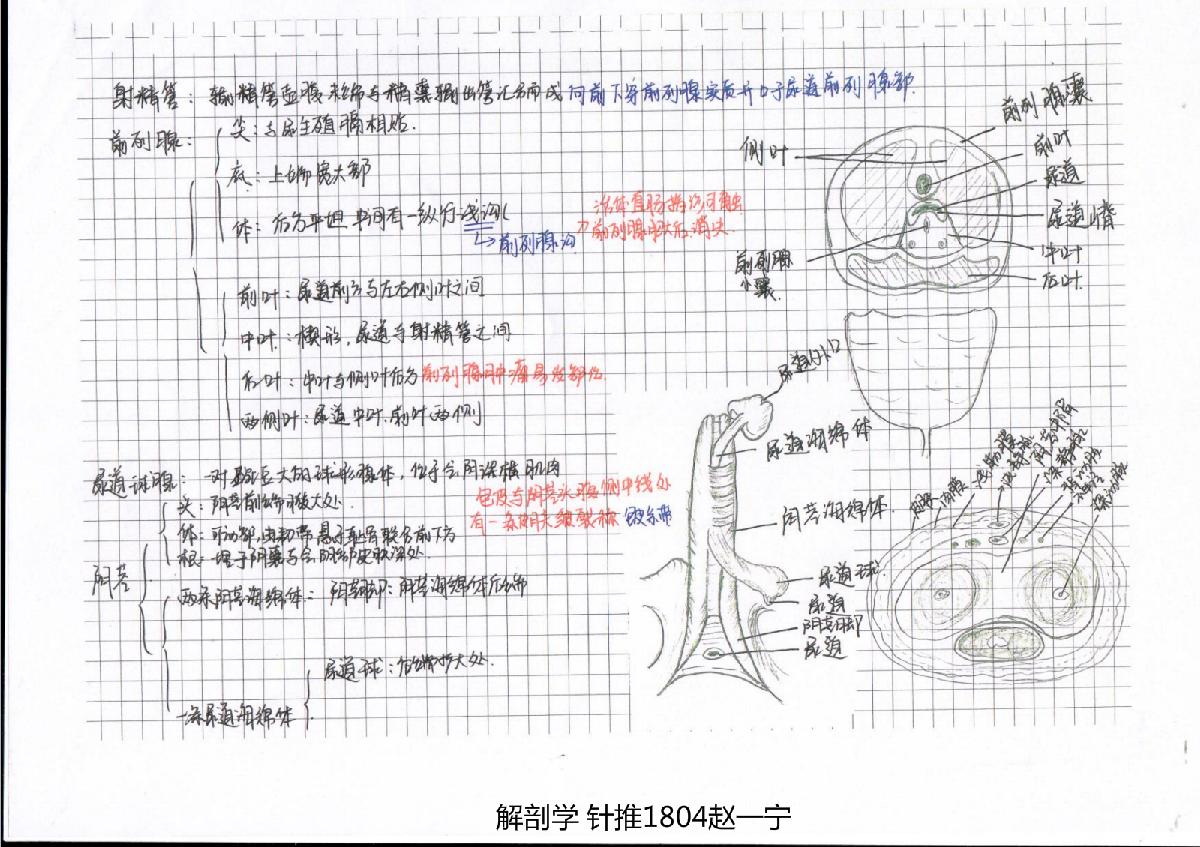 射精管：输精管壶腹末端与精囊输出管汇合而成 向前下穿前列腺实质开口于尿道前列腺部.
前列腺：
尖：与尿生殖膈相贴.
底：上端宽大部
体：后方平坦 中间有一纵行浅沟
前列腺沟
活体直肠指诊可触
前列腺肿大后消失.
前叶：尿道前方与左右侧叶之间
中叶：楔形，尿道与射精管之间
后叶：中叶与侧叶后方 前列腺肿瘤易发部位.
两侧叶：尿道中叶.前叶两侧
尿道球腺：一对豌豆大的球形腺体，位于会阴深横肌内
包皮与阴茎头腹侧中线处
有一条皮肤皱襞称 包皮系带
阴茎
头：阴茎前端膨大处.
体：可动部，由韧带悬于耻骨联合前下方
根：埋于阴囊与会阴部皮肤深处
两条阴茎海绵体： 阴茎脚：阴茎海绵体后端
一条尿道海绵体
尿道球：后端膨大处.
前列腺囊
侧叶
前叶
尿道
尿道嵴
中叶
后叶.
前列腺
小囊.
尿道外口
尿道海绵体
阴茎海绵体.
尿道球.
尿道
阴茎脚
尿道
解剖学 针推1804赵一宁